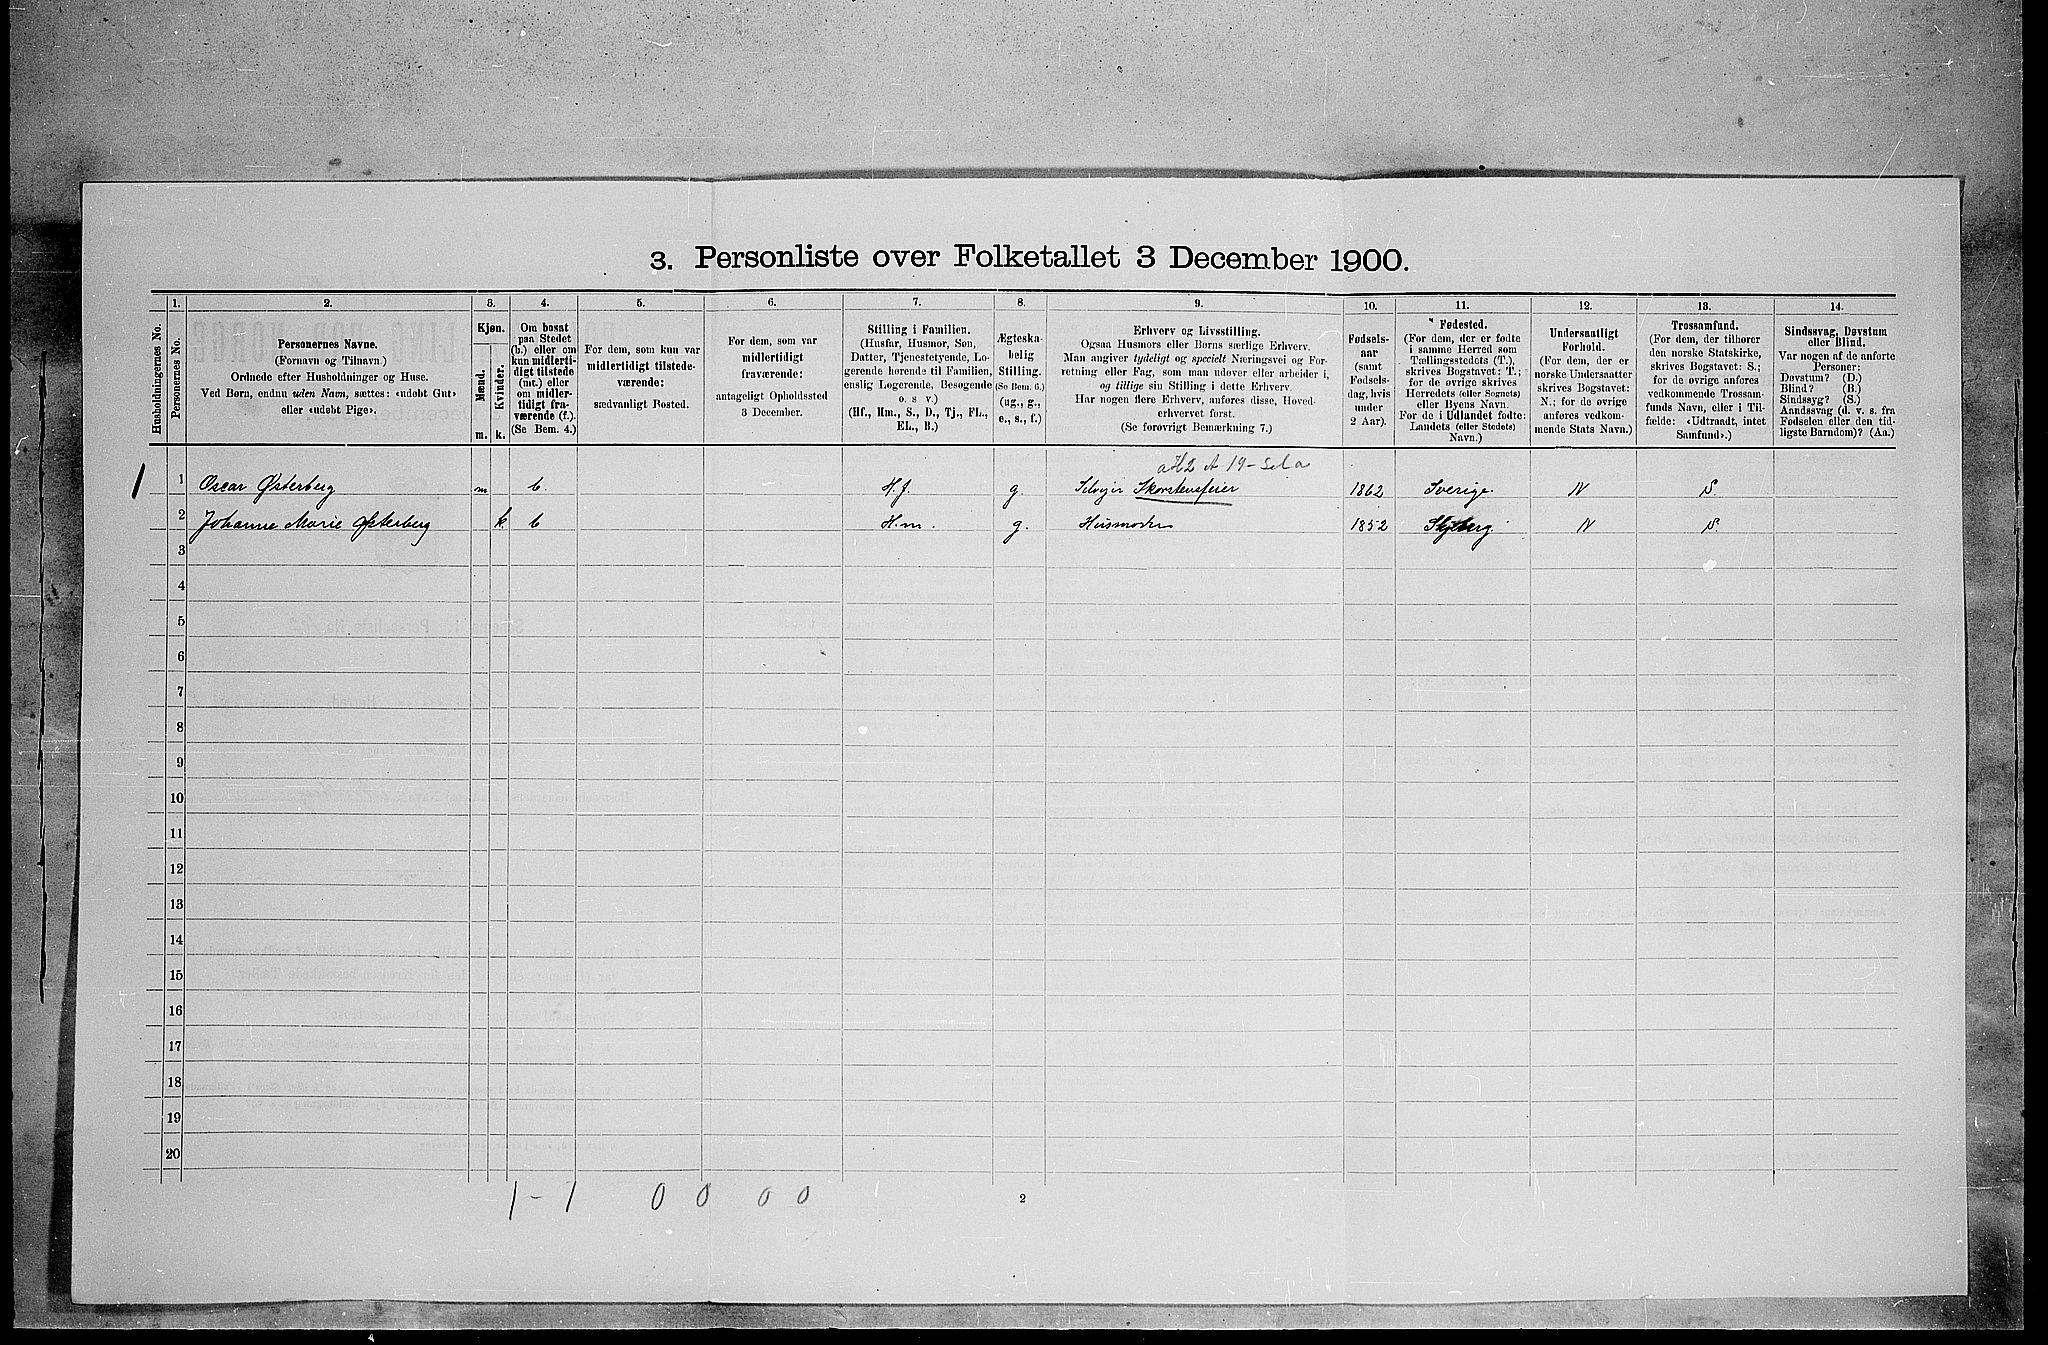 3. Personliste over Folketallet 3 December 1900.
1. 2. 3. 4. 5. 6. 7. 8. 9. 10. 11. 12. 13. 14.
Husholdningernes No.
Personernes No.
Personernes Navne.
(Fornavn og Tilnavn.)
Ordnede efter Husholdninger og Huse.
Ved Børn, endnu uden Navn, sættes: «udøbt Gut»
eller «udøbt Pige».
Kjøn.
Mænd.
Kvinder.
m. k.
Om bosat
paa Stedet
(b.) eller om
kun midlerti-
digt tilstede
(mt.) eller
om midler-
tidigt fra-
værende (f.).
(Se Bem. 4.)
For dem, som kun var
midlertidigt tilstede-
værende:
sædvanligt Bosted.
For dem, som var
midlertidigt
fraværende:
antageligt Opholdssted
3 December.
Stilling i Familien.
(Husfar, Husmor, Søn,
Datter, Tjenestetyende, Lo-
gerende hørende til Familien,
enslig Logerende, Besøgende
o. s v.)
(Hf., Hm., S., D., Tj., FL.,
EL., B.)
Ægteska-
belig
Stilling.
(Se Bem. 6.)
(ug., g.,
e., s., f.)
Erhverv og Livsstilling.
Ogsaa Husmors eller Børns særlige Erhverv.
Man angiver tydeligt og specielt Næringsvei og For-
retning eller Fag, som man udøver eller arbeider i,
og tillige sin Stilling i dette Erhverv.
Har nogen flere Erhverv, anføres disse, Hoved-
erhvervet først.
(Se forøvrigt Bemærkning 7.)
Fødsels-
aar
(samt
Fødsels-
dag, hvis
under
2 Aar).
Fødested.
(For dem, der er fødte
i samme Herred som
Tællingsstedets (T.),
skrives Bogstavet: T.;
for de øvrige skrives
Herredets (eller Sognets)
eller Byens Navn.
For de i Udlandet fødte:
Landets (eller Stedets)
Navn.)
Undersaatligt
Forhold.
(For dem, der er
norske Undersaatter
skrives Bogstavet:
N.; for de øvrige
anføres vedkom-
mende Stats Navn.)
Trossamfund.
(For dem, der tilhører
den norske Statskirke,
skrives Bogstavet: S.;
for de øvrige anføres
vedkommende Trossam-
funds Navn, eller i Til-
fælde: «Udtraadt, intet
Samfund».)
Sindssvag, Døvstum
eller Blind.
Var nogen af de anførte
Personer:
Døvstum? (D.)
Blind? (B.)
Sindssyg? (S.)
Aandssvag (d. v. s. fra
Fødselen eller den tid-
ligste Barndom)? (Aa.)
1 1 Oscar Østerberg m b. H.f. g. Selveier Skorstensfeier 1862 Sverige. N S.
2 Johanne Marie Østerberg k b H.m. g. Husmoder 1852 N S.
3
4
5
6
7
8
9
10
11
12
13
14
15
16
17
18
19
20
1-1 0 0 0 0
2